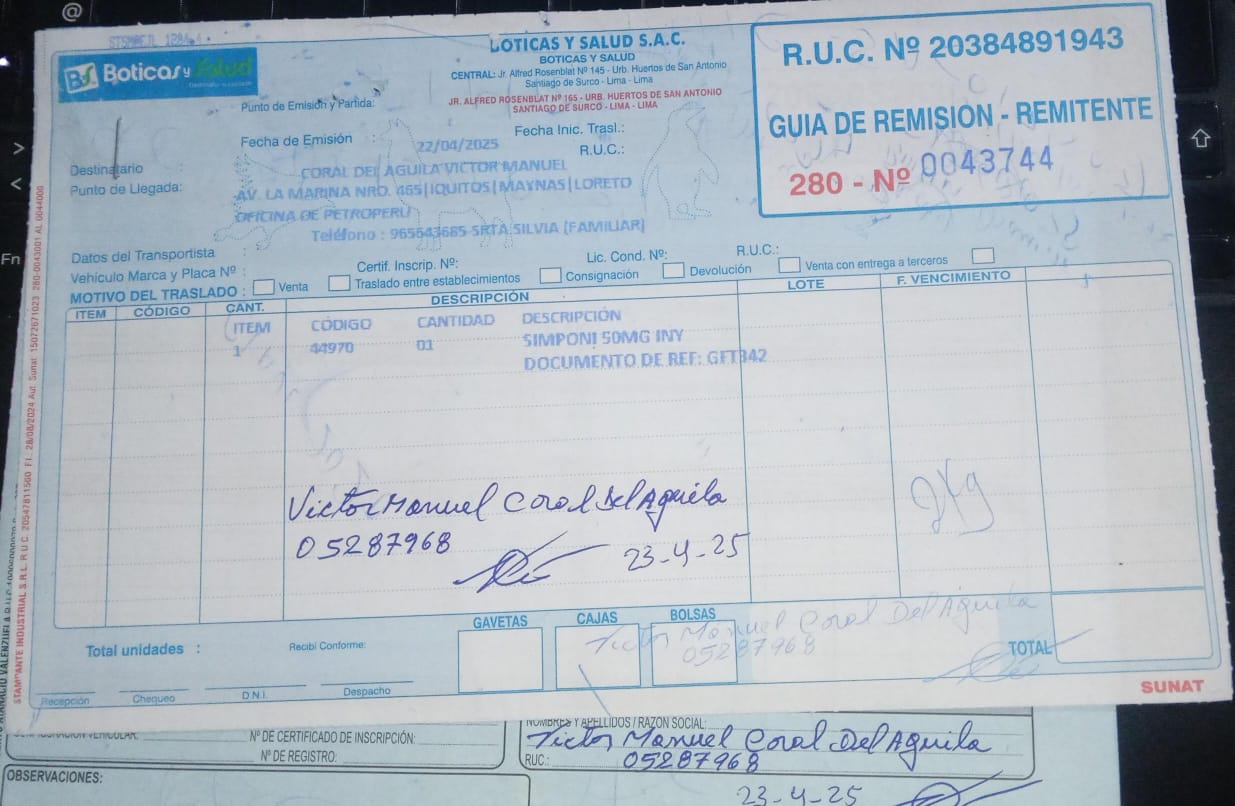 @
Boticas y Salud
BOTICAS Y SALUD S.A.C.
BOTICAS Y SALUD
CENTRAL: Jr. Alfred Rosenblat Nº 145 - Urb. Huertos de San Antonio
Santiago de Surco - Lima - Lima
JR. ALFRED ROSENBLAT Nº 165 - URB. HUERTOS DE SAN ANTONIO
SANTIAGO DE SURCO - LIMA - LIMA
R.U.C. Nº 20384891943
GUIA DE REMISIÓN - REMITENTE
280 - Nº 0043744
Punto de Emisión y Partida:
Fecha de Emisión : 22/04/2025
Fecha Inic. Trasl.:
R.U.C.:
Destinatario : CORAL DEL AGUILA VICTOR MANUEL
Punto de Llegada: AV. LA MARINA NRO. 465|IQUITOS|MAYNAS|LORETO
OFICINA DE PETROPERU
Teléfono : 965643685 SRTA SILVIA (FAMILIAR)
Datos del Transportista :
Vehículo Marca y Placa Nº :
Certif. Inscrip. Nº:
Lic. Cond. Nº:
R.U.C.:
MOTIVO DEL TRASLADO : Venta Traslado entre establecimientos Consignación Devolución Venta con entrega a terceros
ITEM CÓDIGO CANT. DESCRIPCIÓN LOTE F. VENCIMIENTO
ITEM CÓDIGO CANTIDAD DESCRIPCIÓN
1 44970 01 SIMPONI 50MG INY
DOCUMENTO DE REF: GFT342
Victor Manuel Coral Del Aguila
05287968
23-4-25
GAVETAS CAJAS BOLSAS
Victor Manuel Coral Del Aguila
05287968
Total unidades :
Recibí Conforme:
TOTAL
Recepción Chequeo D.N.I. Despacho
SUNAT
Fn
Nº DE CERTIFICADO DE INSCRIPCIÓN:
Nº DE REGISTRO:
NOMBRES Y APELLIDOS / RAZON SOCIAL:
Victor Manuel Coral Del Aguila
RUC: 05287968
OBSERVACIONES:
23-4-25